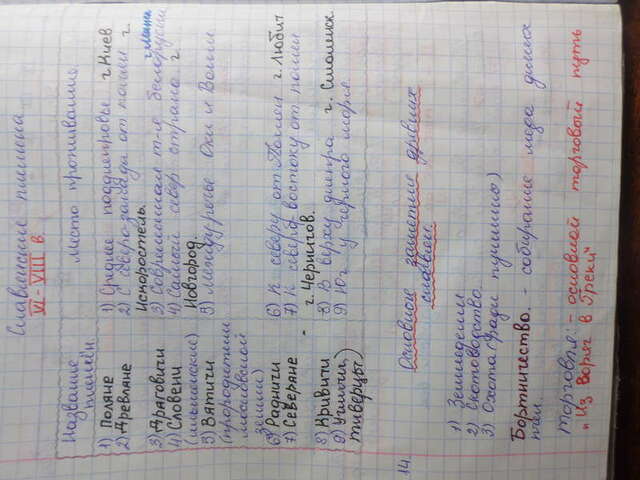 Славянские племена
VI - VIII в.
Название племён
Место проживания
1) Поляне
1) Среднее поднепровье г. Киев
2) Древляне
2) С северо-запада от полян г.
Искоростель.
3) Драговичи
3) Современная т-ие белоруссии
4) Словени
4) Самый север страны г
(ильменские)
Новгород.
5) Вятичи
5) междуречье Оки и Волги
(прородители
московской
земли)
6) Радичи
6) К северу от Полян г. Любит
7) Северяне -
7) К северо востоку от полян
г. Чернигов.
8) Кривичи
8) В верху днепра г. Смоленск
9) Угличи,
9) Юг у черного моря.
тиверцы)
14.
Основное занятие древних
славян:
1) Земледелия
2) Скотоводство
3) Охота (ради пушнины)
Бортничество. - собирание меда диких
пчел
Торговля: - основной торговый путь
"Из Варяг в Греки"